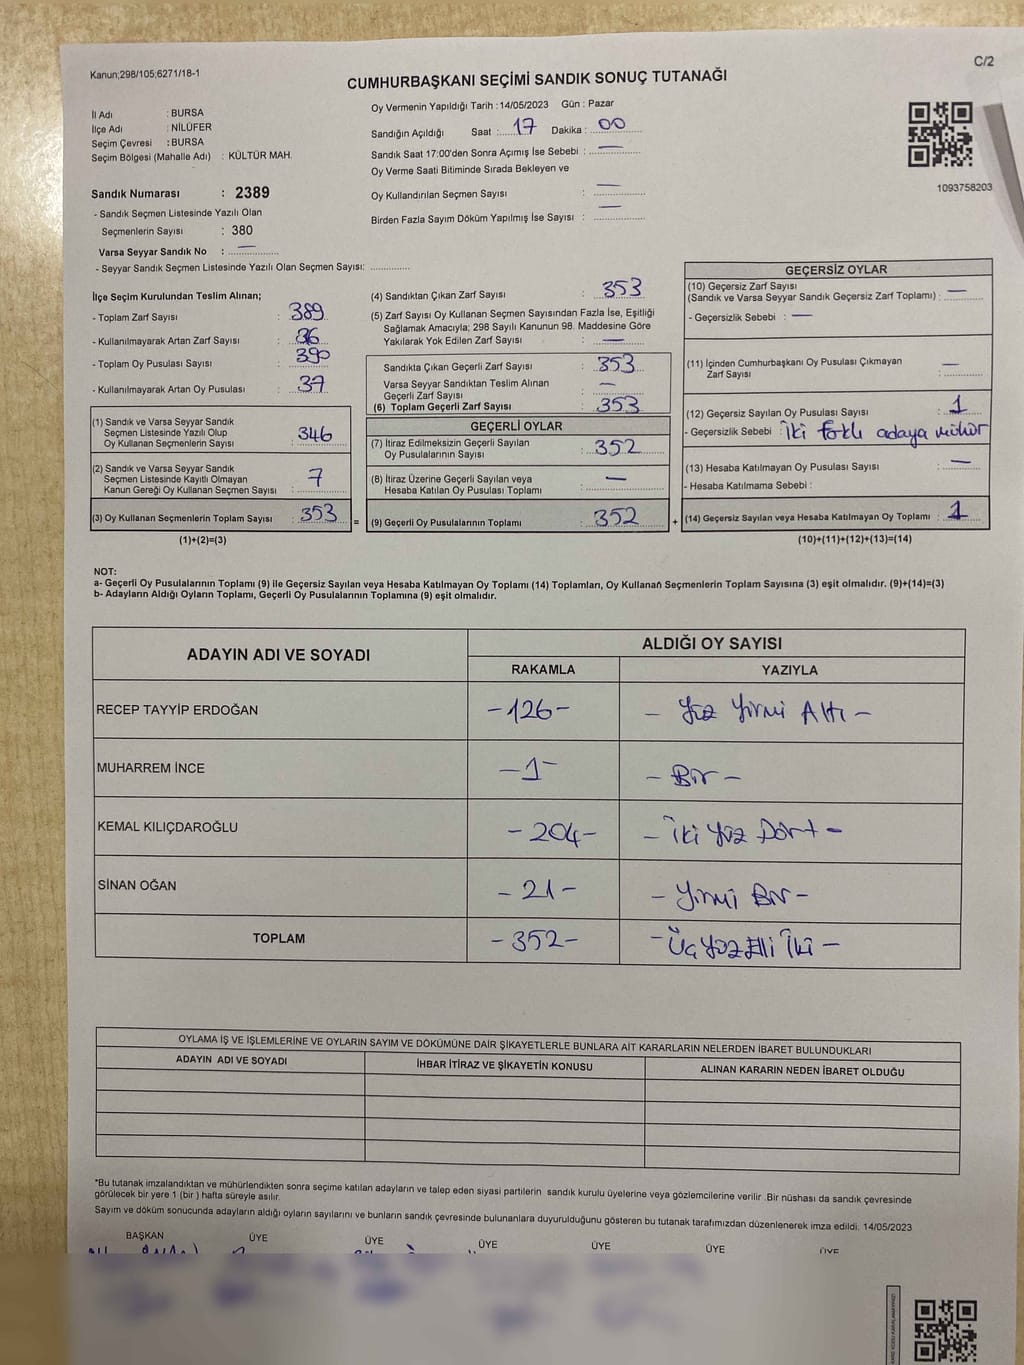 Kanun;298/105;6271/18-1
C/2
CUMHURBAŞKANI SEÇİMİ SANDIK SONUÇ TUTANAĞI
İl Adı : BURSA
İlçe Adı : NİLÜFER
Seçim Çevresi : BURSA
Seçim Bölgesi (Mahalle Adı) : KÜLTÜR MAH.
Sandık Numarası : 2389
- Sandık Seçmen Listesinde Yazılı Olan
Seçmenlerin Sayısı : 380
Varsa Seyyar Sandık No : —
- Seyyar Sandık Seçmen Listesinde Yazılı Olan Seçmen Sayısı: ............
Oy Vermenin Yapıldığı Tarih :14/05/2023 Gün : Pazar
Sandığın Açıldığı Saat : 17 Dakika : 00
Sandık Saat 17:00'den Sonra Açımış İse Sebebi : —
Oy Verme Saati Bitiminde Sırada Bekleyen ve
Oy Kullandırılan Seçmen Sayısı : —
Birden Fazla Sayım Döküm Yapılmış İse Sayısı : —
1093758203
İlçe Seçim Kurulundan Teslim Alınan;
- Toplam Zarf Sayısı : 389
- Kullanılmayarak Artan Zarf Sayısı : 36
- Toplam Oy Pusulası Sayısı : 390
- Kullanılmayarak Artan Oy Pusulası : 37
(1) Sandık ve Varsa Seyyar Sandık
Seçmen Listesinde Yazılı Olup
Oy Kullanan Seçmenlerin Sayısı : 346
(2) Sandık ve Varsa Seyyar Sandık
Seçmen Listesinde Kayıtlı Olmayan
Kanun Gereği Oy Kullanan Seçmen Sayısı : 7
(3) Oy Kullanan Seçmenlerin Toplam Sayısı : 353 =
(1)+(2)=(3)
(4) Sandıktan Çıkan Zarf Sayısı : 353
(5) Zarf Sayısı Oy Kullanan Seçmen Sayısından Fazla İse, Eşitliği
Sağlamak Amacıyla; 298 Sayılı Kanunun 98. Maddesine Göre
Yakılarak Yok Edilen Zarf Sayısı : —
Sandıkta Çıkan Geçerli Zarf Sayısı : 353
Varsa Seyyar Sandıktan Teslim Alınan
Geçerli Zarf Sayısı : —
(6) Toplam Geçerli Zarf Sayısı : 353
GEÇERLİ OYLAR
(7) İtiraz Edilmeksizin Geçerli Sayılan
Oy Pusulalarının Sayısı : 352
(8) İtiraz Üzerine Geçerli Sayılan veya
Hesaba Katılan Oy Pusulası Toplamı : —
(9) Geçerli Oy Pusulalarının Toplamı : 352 +
GEÇERSİZ OYLAR
(10) Geçersiz Zarf Sayısı
(Sandık ve Varsa Seyyar Sandık Geçersiz Zarf Toplamı) : —
- Geçersizlik Sebebi : —
(11) İçinden Cumhurbaşkanı Oy Pusulası Çıkmayan
Zarf Sayısı : —
(12) Geçersiz Sayılan Oy Pusulası Sayısı : 1
- Geçersizlik Sebebi : İki farklı adaya mühür
(13) Hesaba Katılmayan Oy Pusulası Sayısı : —
- Hesaba Katılmama Sebebi :
(14) Geçersiz Sayılan veya Hesaba Katılmayan Oy Toplamı : 1
(10)+(11)+(12)+(13)=(14)
NOT:
a- Geçerli Oy Pusulalarının Toplamı (9) ile Geçersiz Sayılan veya Hesaba Katılmayan Oy Toplamı (14) Toplamları, Oy Kullanan Seçmenlerin Toplam Sayısına (3) eşit olmalıdır. (9)+(14)=(3)
b- Adayların Aldığı Oyların Toplamı, Geçerli Oy Pusulalarının Toplamına (9) eşit olmalıdır.
ADAYIN ADI VE SOYADI ALDIĞI OY SAYISI
RAKAMLA YAZIYLA
RECEP TAYYİP ERDOĞAN -126- - Yüz Yirmi Altı -
MUHARREM İNCE -1- - Bir -
KEMAL KILIÇDAROĞLU -204- - İki Yüz Dört -
SİNAN OĞAN -21- - Yirmi Bir -
TOPLAM -352- - Üç Yüz Elli İki -
OYLAMA İŞ VE İŞLEMLERİNE VE OYLARIN SAYIM VE DÖKÜMÜNE DAİR ŞİKAYETLERLE BUNLARA AİT KARARLARIN NELERDEN İBARET BULUNDUKLARI
ADAYIN ADI VE SOYADI İHBAR İTİRAZ VE ŞİKAYETİN KONUSU ALINAN KARARIN NEDEN İBARET OLDUĞU
*Bu tutanak imzalandıktan ve mühürlendikten sonra seçime katılan adayların ve talep eden siyasi partilerin sandık kurulu üyelerine veya gözlemcilerine verilir .Bir nüshası da sandık çevresinde
görülecek bir yere 1 (bir ) hafta süreyle asılır.
Sayım ve döküm sonucunda adayların aldığı oyların sayılarını ve bunların sandık çevresinde bulunanlara duyurulduğunu gösteren bu tutanak tarafımızdan düzenlenerek imza edildi. 14/05/2023
BAŞKAN ÜYE ÜYE ÜYE ÜYE ÜYE ÜYE